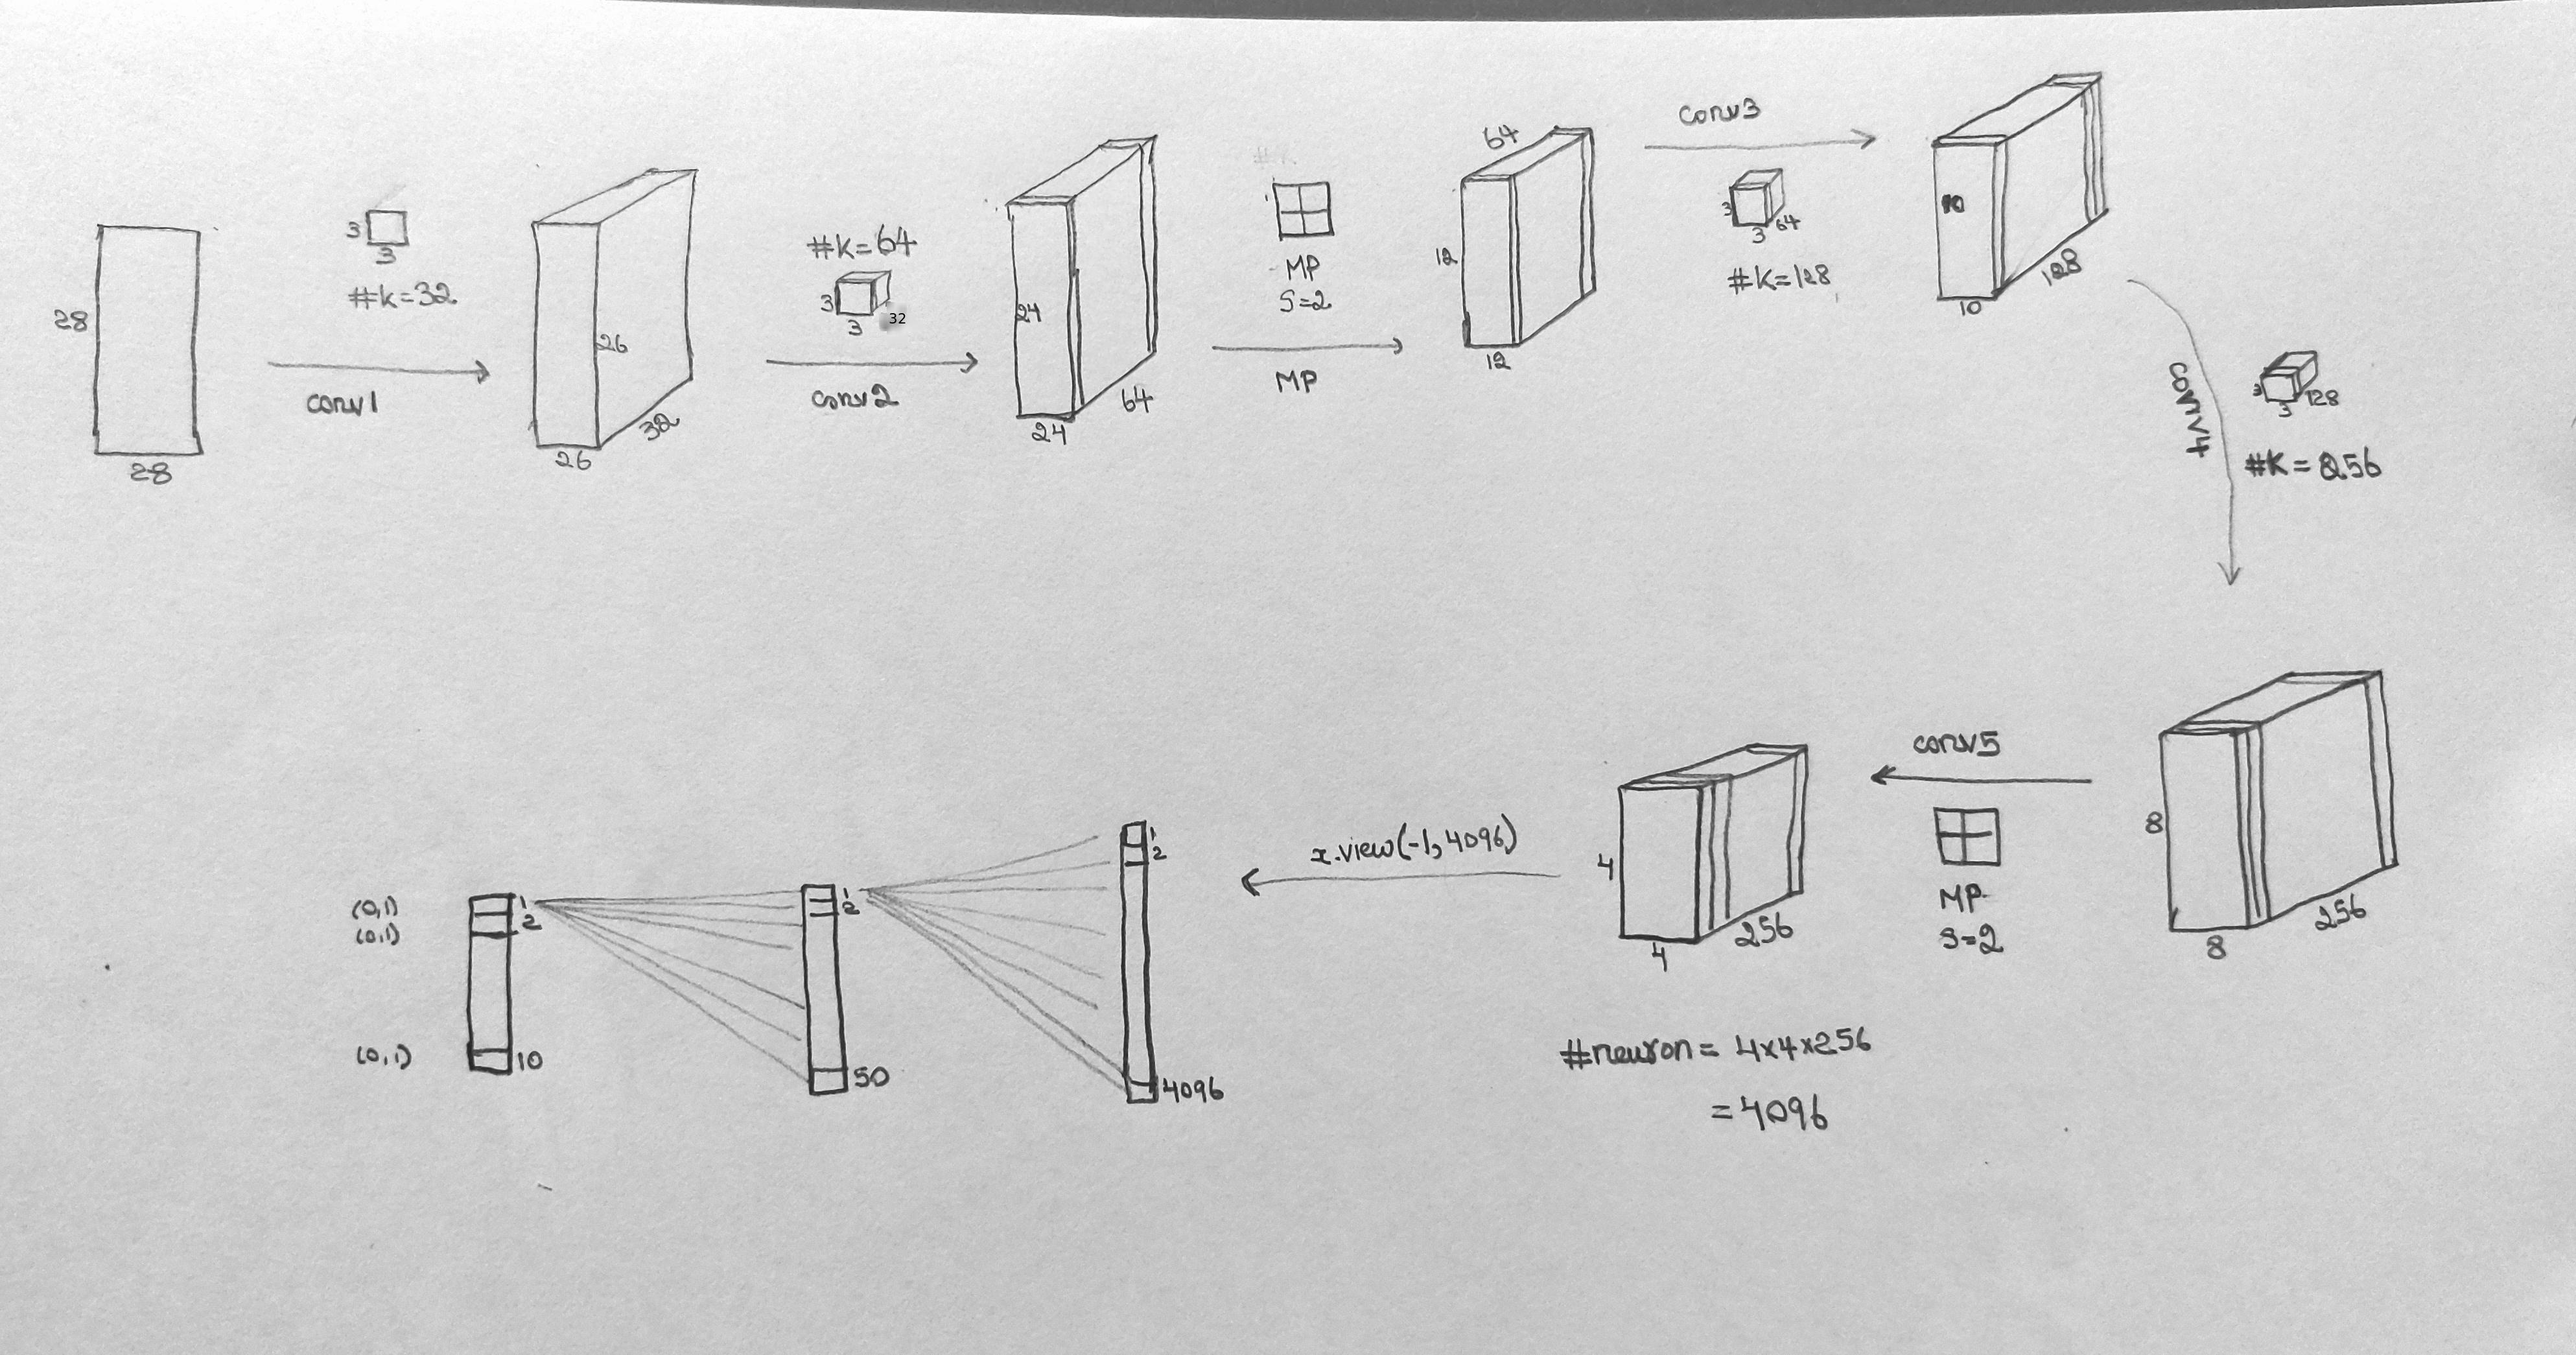 28
28
3
3
#k=32
conv1
26
26
32
#k=64
3
3
32
conv2
24
24
64
MP
S=2
MP
64
12
12
conv3
3
3
64
#k=128
10
10
128
conv4
3
3
128
#K=256
8
8
256
conv5
MP
S=2
4
4
256
#neuron= 4x4x256
=4096
x.view(-1,4096)
1
2
4096
1
2
50
1
2
10
(0,1)
(0,1)
(0,1)